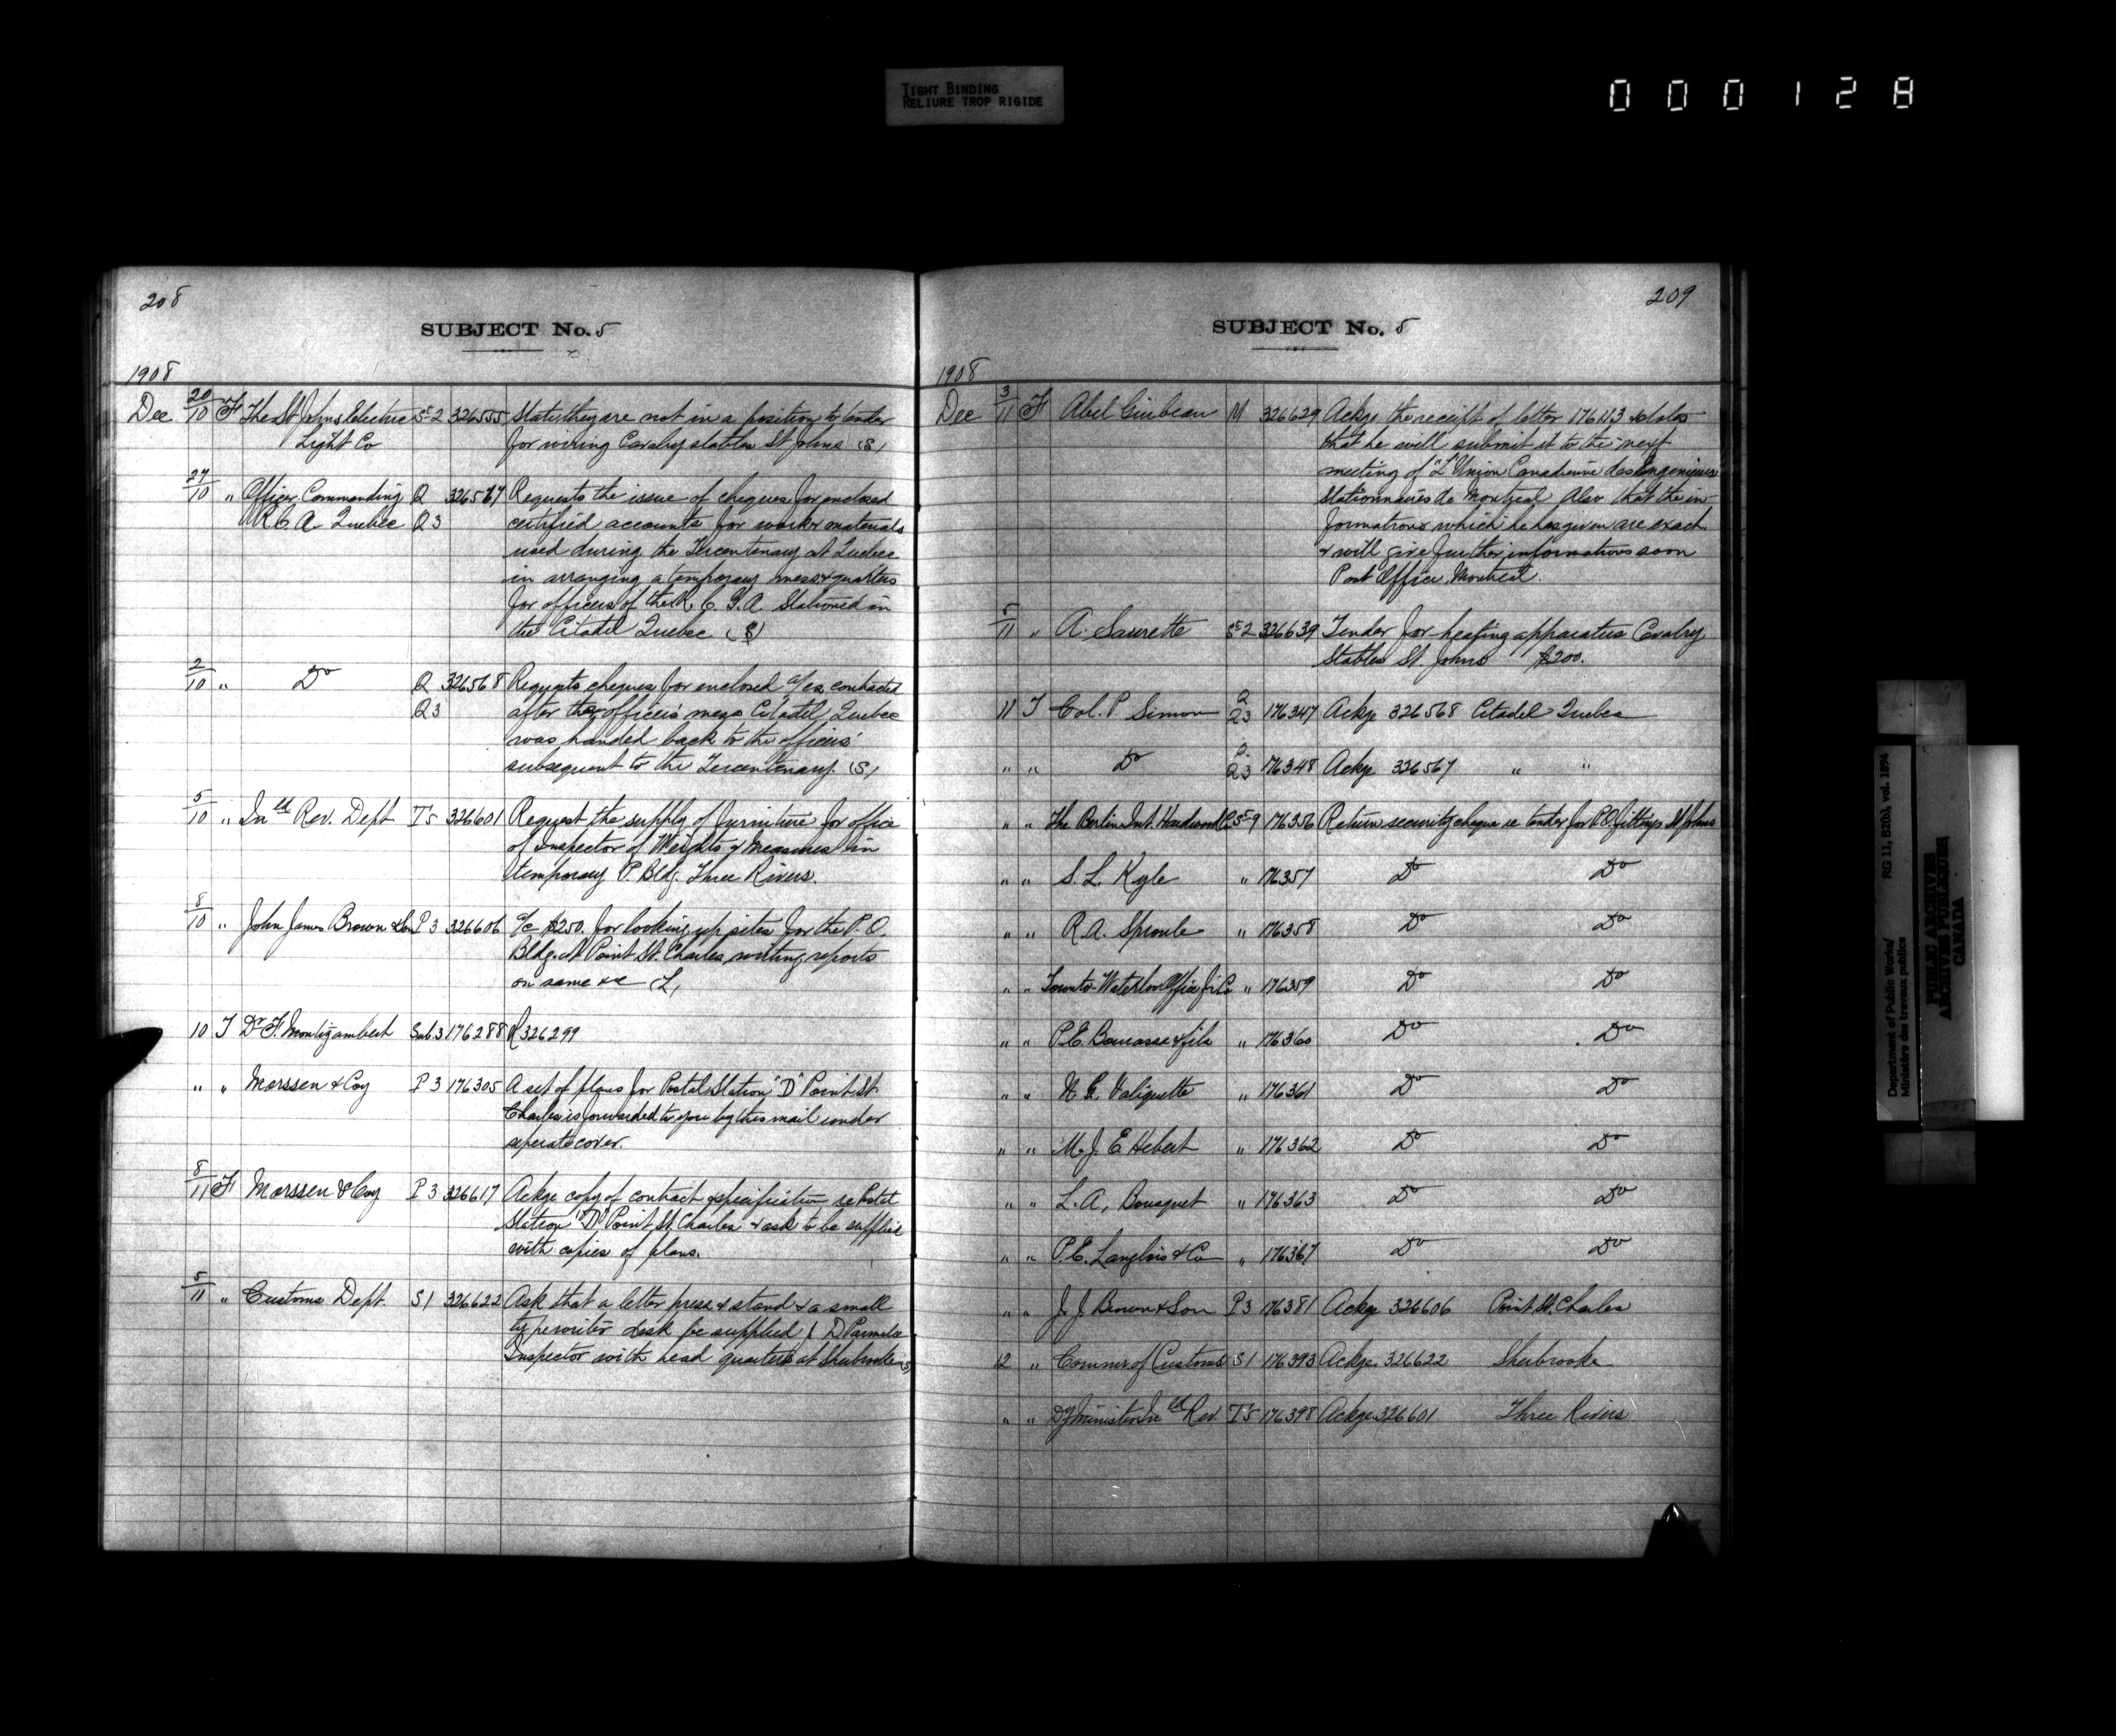 TIGHT BINDING
RELIURE TROP RIGIDE
000128
208
SUBJECT No. 5
1908
Dec 20/10 F The St Johns Electric St 2 326555 State they are not in a position to tender
Light Co for wiring Cavalry stables St Johns (S)
27/10 " Officer Commanding Q 326567 Requests the issue of cheques for enclosed
R C A Quebec Q3 certified accounts for work & materials
used during the Tercentenary at Quebec
in arranging a temporary mess & quarters
for officers of the R. C. G. A. Stationed in
the Citadel Quebec (S)
2/10 " Do Q 326568 Requests cheques for enclosed a/cs contracted
Q3 after the officers' mess Citadel Quebec
was handed back to the officers'
subsequent to the Tercentenary. (S)
5/10 " Inld Rev. Dept T5 326601 Request the supply of furniture for office
of Inspector of Weights & Measures in
temporary P. Bldg. Three Rivers.
8/10 " John James Brown & Son P3 326606 a/c $250. for looking up sites for the P.O.
Bldg. at Point St. Charles, writing reports
on same &c (L)
10 T Dr F. Montizambert Sub. 3 176288 R 326299
" " Morssen & Coy P3 176305 A set of plans for Postal Station "D" Point St
Charles is forwarded to you by this mail under
seperate cover.
8/11 F Morssen & Coy P3 326617 Ackge copy of contract & specification re Postal
Station "D" Point St. Charles & ask to be supplied
with copies of plans.
5/11 " Customs Dept. S1 326622 Ask that a letter press & stand & a small
typewriter desk be supplied D Parmelee
Inspector with head quarters at Sherbrooke (S)
209
SUBJECT No. 5
1908
Dec 3/11 F Abel Guibeau M 326629 Ackge the receipt of letter 176113 & states
that he will submit it to the next
meeting of "L'Union Canadienne des Ingenieurs
Stationnaires de Montreal Also that the in-
formations which he has given are exact
& will give further informations soon
Post Office, Montreal.
5/11 " A. Saurette St 2 326639 Tender for heating apparatus Cavalry
Stables St. Johns $200.
11 T Col. P. Simon Q Q3 176347 Ackge 326568 Citadel Quebec
" " Do Q3 176348 Ackge 326567 " "
" " The Berlin Int. Hardwood Co St 9 176356 Return security cheque re tender for P.O. fittings St Johns
" " S. L. Kyle " 176357 Do Do
" " R. A. Sproule " 176358 Do Do
" " Toronto-Waterloo Office Fi. Co " 176359 Do Do
" " P. E. Bourassa & fils " 176360 Do Do
" " N. G. Valiquette " 176361 Do Do
" " M. J. E Hebert " 176362 Do Do
" " L. A. Bousquet " 176363 Do Do
" " P. E. Langlois & Co " 176367 Do Do
" " J. J. Brown & Son P3 176381 Ackge 326606 Point St. Charles
12 " Commr of Customs S1 176393 Ackge. 326622 Sherbrooke
" " Dy Minister Inld Rev. T5 176398 Ackge. 326601 Three Rivers
Department of Public Works/
Ministère des travaux publics
RG 11, B2(b), vol. 1894
PUBLIC ARCHIVES
ARCHIVES PUBLIQUES
CANADA